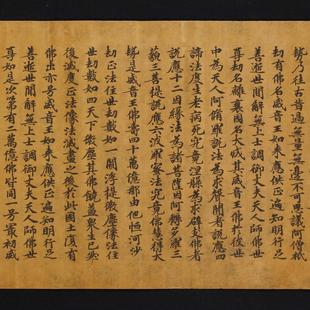 勢乃往古昔過無量無邊不可思議阿僧祇
劫有佛名威音王如來應供正遍知明行足
善逝世間解無上士調御丈夫天人師佛世
尊劫名離衰國名大成其威音王佛於彼世
中為天人阿脩羅說法為求聲聞者說應四
諦法度生老病死究竟涅槃為求辟支佛者
說應十二因緣法為諸菩薩因阿耨多羅三
藐三菩提說應六波羅蜜法究竟佛慧得大
勢是威音王佛壽四十萬億那由他恒河沙
劫正法住世劫數如一閻浮提微塵像法住
世劫數如四天下微塵其佛饒益眾生已然
後滅度正法像法滅盡之後於此國土復有
佛出亦号威音王如來應供正遍知明行足
善逝世間解無上士調御丈夫天人師佛世
尊如是次第有二萬億佛皆同一号最初威